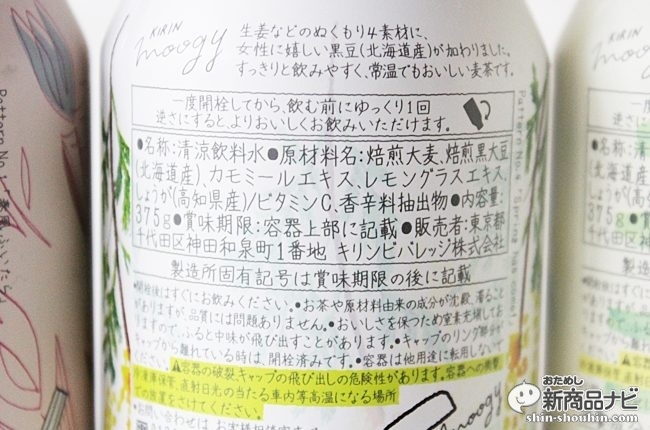 KIRIN
moogy
生姜などのぬくもり4素材に、
女性に嬉しい黒豆(北海道産)が加わりました。
すっきりと飲みやすく、常温でもおいしい麦茶です。
一度開栓してから、飲む前にゆっくり1回
逆さにすると、よりおいしくお飲みいただけます。
●名称:清涼飲料水●原材料名:焙煎大麦、焙煎黒大豆
(北海道産)、カモミールエキス、レモングラスエキス、
しょうが(高知県産)/ビタミンC、香辛料抽出物●内容量:
375g●賞味期限:容器上部に記載●販売者:東京都
千代田区神田和泉町1番地 キリンビバレッジ株式会社
製造所固有記号は賞味期限の後に記載
●開栓後はすぐにお飲みください。●お茶や原材料由来の成分が沈殿、濁ること
がありますが、品質には問題ありません。●おいしさを保つため窒素充填してお
りますので、ふると中味が飛び出すことがあります。●キャップのリング部分が
キャップから離れている時は、開栓済みです。●容器は他用途に転用しないで
⚠容器の破裂、キャップの飛び出しの危険性があります。容器への衝撃、
冷凍庫保管、直射日光の当たる車内等高温になる場所
での放置をさけてください。
moogy
Pattern No.
おためし
新商品ナビ
shin-shouhin.com